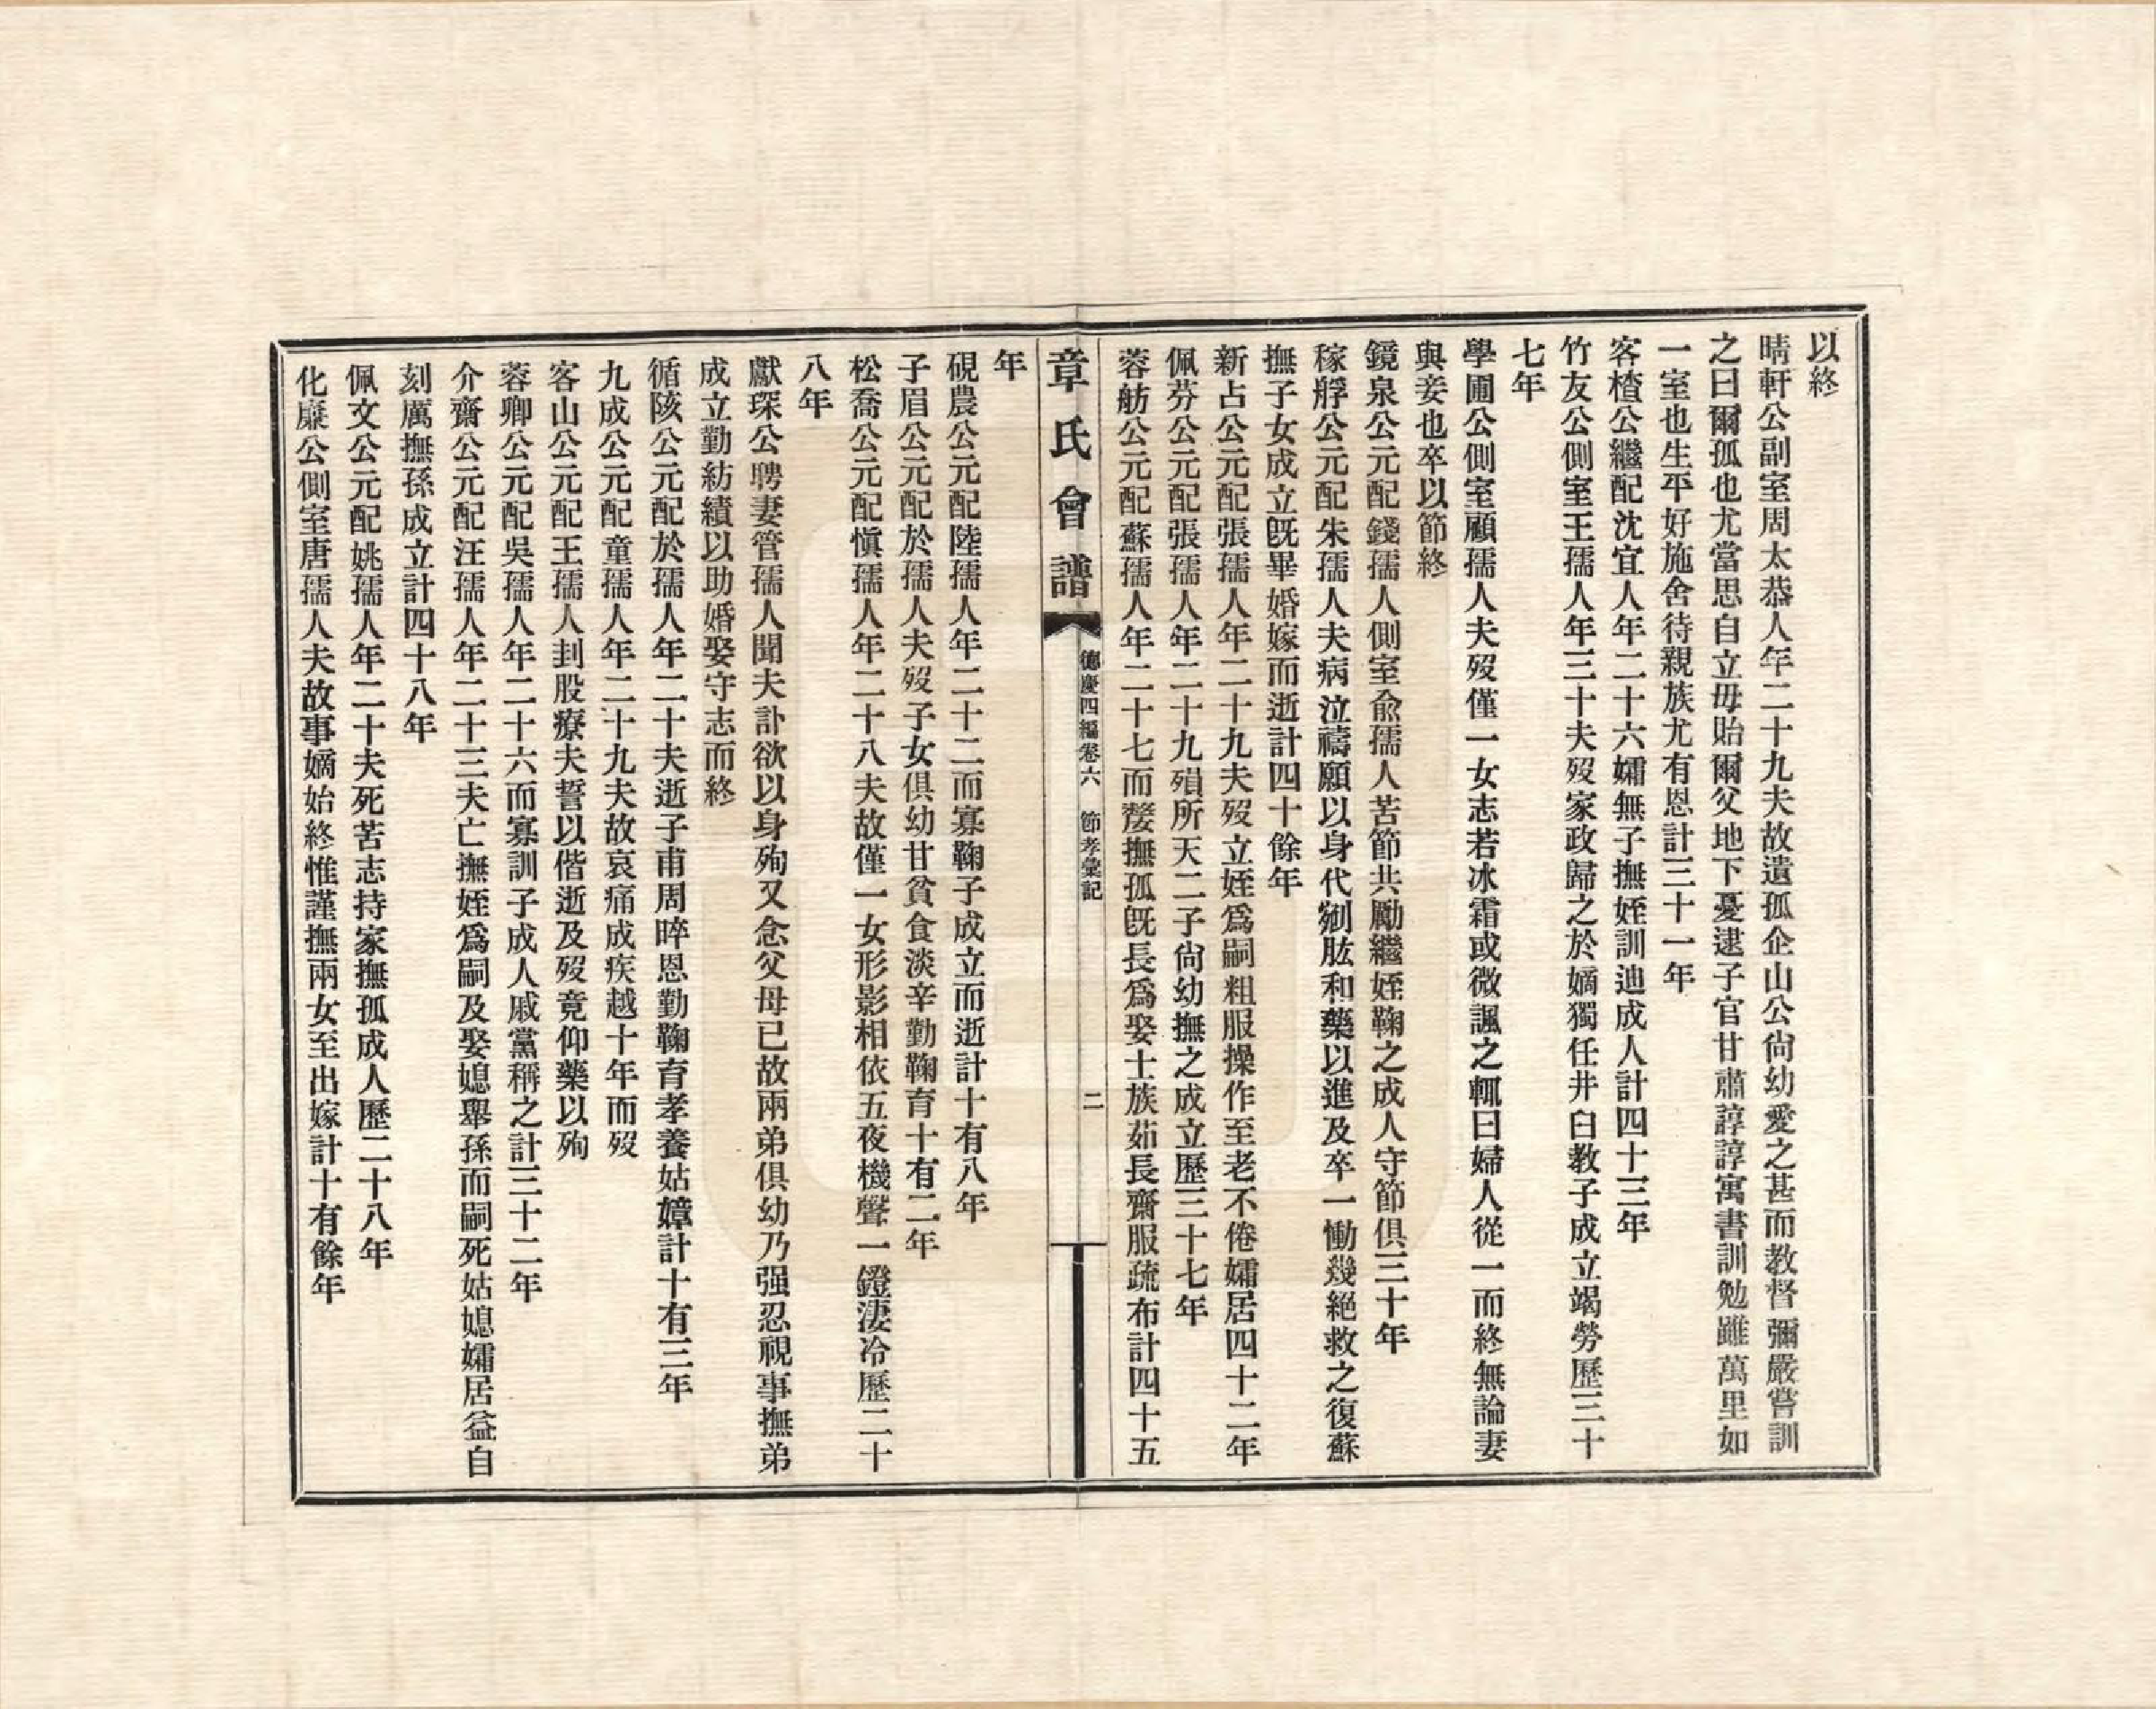 以終
晴軒公副室周太恭人年二十九夫故遺孤企山公尙幼愛之甚而教督彌嚴嘗訓
之曰爾孤也尤當思自立毋貽爾父地下憂逮子官甘肅諄諄寓書訓勉雖萬里如
一室也生平好施舍待親族尤有恩計三十一年
客楂公繼配沈宜人年二十六孀無子撫姪訓迪成人計四十三年
竹友公側室王孺人年三十夫歿家政歸之於嫡獨任井臼教子成立竭勞歷三十
七年
學圃公側室顧孺人夫歿僅一女志若冰霜或微諷之輒曰婦人從一而終無論妻
與妾也卒以節終
鏡泉公元配錢孺人側室兪孺人苦節共勵繼姪鞠之成人守節俱三十年
稼艀公元配朱孺人夫病泣禱願以身代剜肱和藥以進及卒一慟幾絕救之復蘇
撫子女成立旣畢婚嫁而逝計四十餘年
新占公元配張孺人年二十九夫歿立姪爲嗣粗服操作至老不倦孀居四十二年
佩芬公元配張孺人年二十九殞所天二子尙幼撫之成立歷三十七年
蓉舫公元配蘇孺人年二十七而嫠撫孤旣長爲娶士族茹長齋服疏布計四十五
章氏會譜
德慶四編卷六 節孝彙記
二
年
硯農公元配陸孺人年二十二而寡鞠子成立而逝計十有八年
子眉公元配於孺人夫歿子女俱幼甘貧食淡辛勤鞠育十有二年
松喬公元配愼孺人年二十八夫故僅一女形影相依五夜機聲一鐙淒冷歷二十
八年
獻琛公聘妻管孺人聞夫訃欲以身殉又念父母已故兩弟俱幼乃强忍視事撫弟
成立勤紡績以助婚娶守志而終
循陔公元配於孺人年二十夫逝子甫周晬恩勤鞠育孝養姑嫜計十有三年
九成公元配童孺人年二十九夫故哀痛成疾越十年而歿
客山公元配王孺人刲股療夫誓以偕逝及歿竟仰藥以殉
蓉卿公元配吳孺人年二十六而寡訓子成人戚黨稱之計三十二年
介齋公元配汪孺人年二十三夫亡撫姪爲嗣及娶媳舉孫而嗣死姑媳孀居益自
刻厲撫孫成立計四十八年
佩文公元配姚孺人年二十夫死苦志持家撫孤成人歷二十八年
化麋公側室唐孺人夫故事嫡始終惟謹撫兩女至出嫁計十有餘年